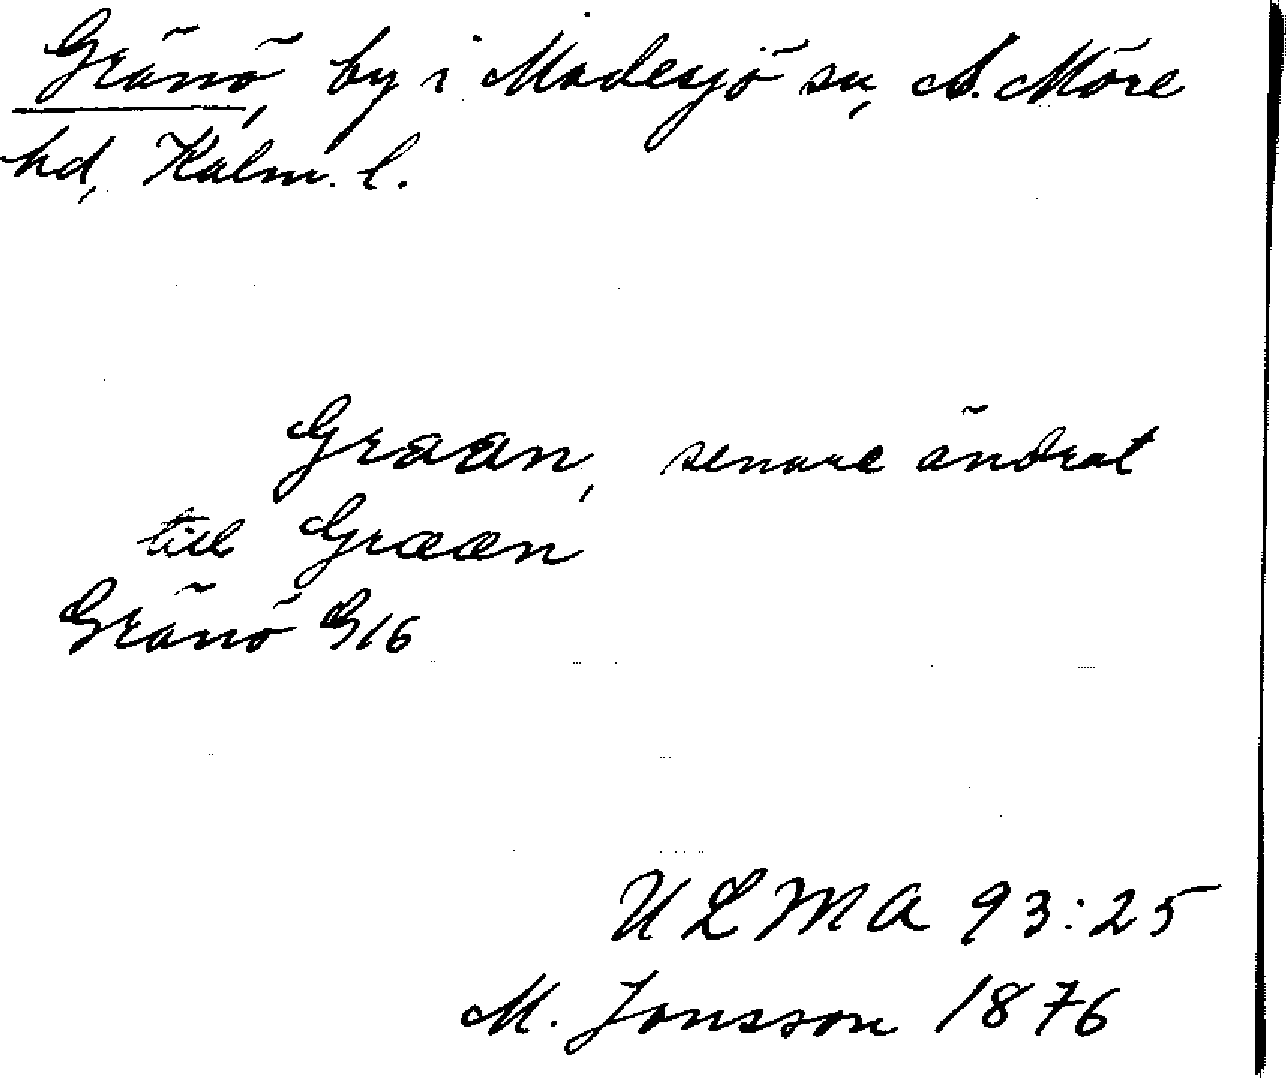 Gränö, by i Madesjö sn, S. Möre
hd, Kalm. l.
Graan, senare ändrat
till Grææn
Gränö G16
ULMA 93:25
M. Jonsson 1876